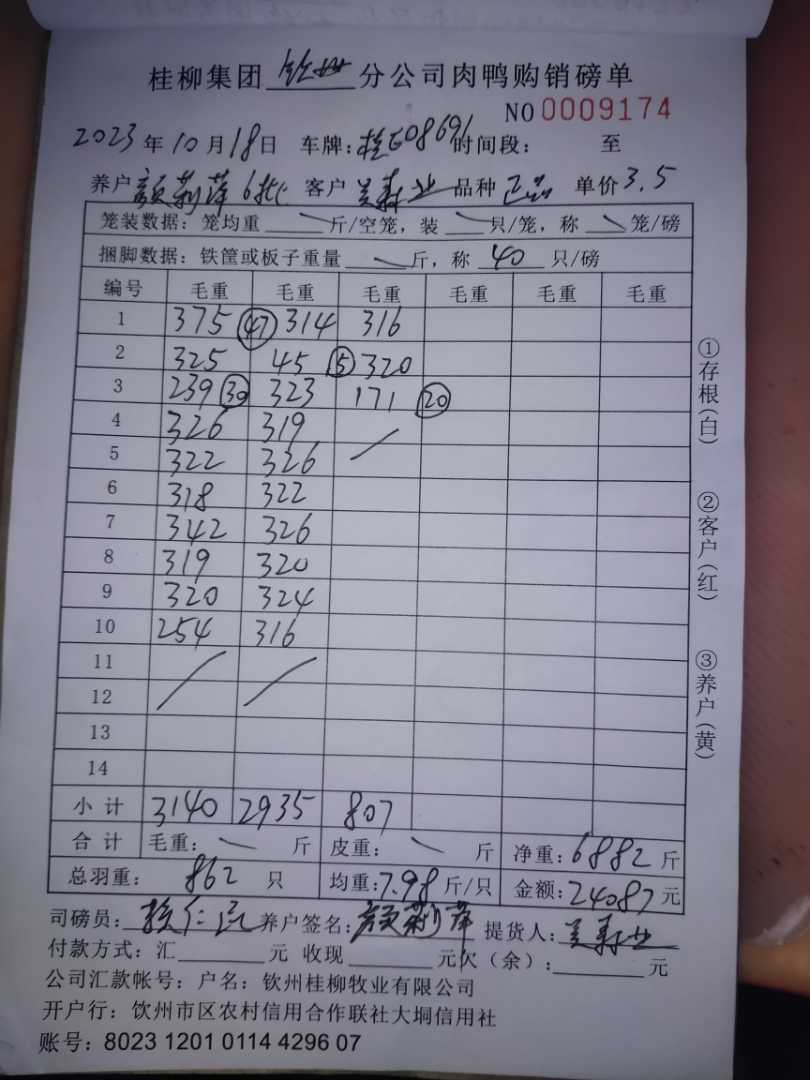 桂柳集团 钦州 分公司肉鸭购销磅单
NO 0009174
2023 年 10 月 18 日 车牌: 桂E08691 时间段: 至
养户 颜莉萍 6批 客户 吴寿业 品种 正品 单价 3.5
笼装数据: 笼均重 斤/空笼, 装 只/笼, 称 笼/磅
捆脚数据: 铁筐或板子重量 斤, 称 40 只/磅
编号 毛重 毛重 毛重 毛重 毛重 毛重
1 375 47 314 316
2 325 45 5 320
3 239 30 323 171 20
4 326 319
5 322 326
6 318 322
7 342 326
8 319 320
9 320 324
10 254 316
11
12
13
14
小计 3140 2935 807
合计 毛重: 斤 皮重: 斤 净重: 6882 斤
总羽重: 862 只 均重: 7.98 斤/只 金额: 24087 元
司磅员: 养户签名: 颜莉萍 提货人: 吴寿业
付款方式: 汇 元 收现 元欠(余): 元
公司汇款帐号: 户名: 钦州桂柳牧业有限公司
开户行: 饮州市区农村信用合作联社大垌信用社
账号: 8023 1201 0114 4296 07
①存根(白)
②客户(红)
③养户(黄)